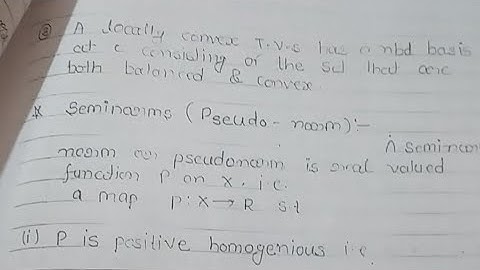 ② A locally convex T.V.S has a nbd basis
at e consisting of the set that are
both balanced & convex.
* Seminorms (Pseudo-norm):-
A seminor
norm or pseudonorm is oral valued
function P on X. i.e.
a map p: X → R s.t
(i) P is positive homogenious i.e.